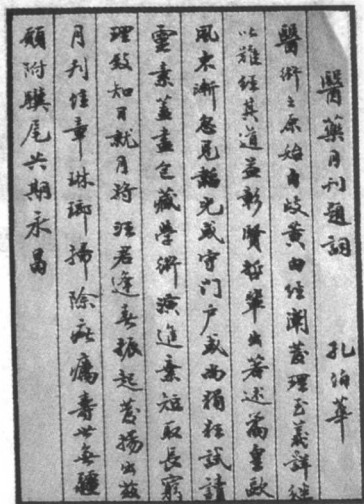 醫藥月刊題詞 孔伯華
醫術之原始自岐黃內經闡發理至義詳繼
以難經其道益彰賢哲輩出著述篇皇歐
風東漸忽尾韜光或守門戶或為猖狂試讀
靈素蓋盡包藏學術演進棄短取長窮
理致知日就月將汪君逢春振起發揚出茲
月刊佳章琳瑯掃除疵癘壽世無疆
願附驥尾共期永昌